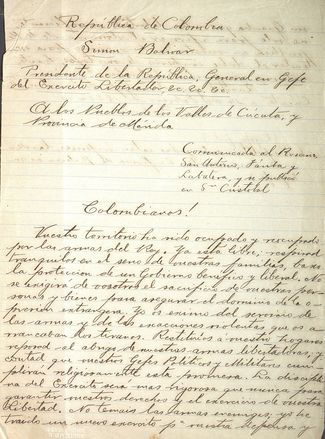 República de Colombia
Simon Bolivar
Presidente de la República, General en Gefe
del Exercito Libertador &c. &c. &c.
A los Pueblos de los Valles de Cúcuta, y
Provincia de Mérida
Comunicada al Rosario,
San Antonio,
y se publicó
en Sn Cristobal
Colombianos!
Vuestro territorio ha sido ocupado y
por las armas del Rey. Ya esta libre; respirad
tranquilos en el seno de vuestras familias, baxo
la proteccion de un Gobierno benefico y liberal. No
se exigirá de vosotros el sacrificio de vuestras per-
sonas y bienes para asegurar el dominio de la o-
presion extrangera. Yo os eximo del servicio de
las armas y de las exacciones violentas que os a-
rrancaban los tiranos. Restituios a vuestros hogares
reposad al abrigo de nuestras armas libertadoras, y
contad que nuestros Gefes Politicos y Militares cum-
plirán religiosamente esta promesa. La discipli-
na del Exercito será mas rigorosa que nunca para
garantir vuestros derechos y el exercicio de vuestra
Libertad. No temais las armas enemigas; yo he
traido un nuevo exercito pa vuestra defensa y